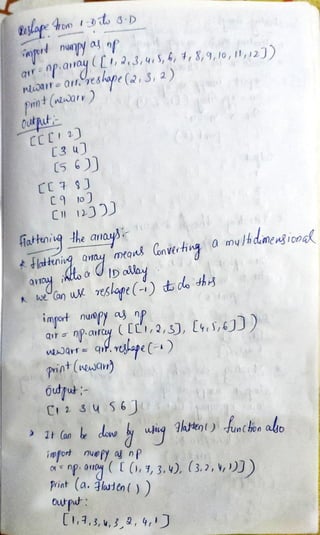 Reshape from 1-D to 3-D
import numpy as np
arr = np.array([1,2,3,4,5,6,7,8,9,10,11,12])
newarr = arr.reshape(2,3,2)
print(newarr)
Output:-
[[[1 2]
[3 4]
[5 6]]
[[7 8]
[9 10]
[11 12]]]
Flattening the arrays:-
* flattening array means Converting a multidimensional
array into a 1D array
* we can use reshape(-1) to do this
import numpy as np
arr = np.array([[1,2,3], [4,5,6]])
newarr = arr.reshape(-1)
print(newarr)
Output:-
[1 2 3 4 5 6]
> It can be done by using flatten() function also
import numpy as np
a = np.array([(1,7,3,4), (3,2,4,1)])
print (a.flatten())
output:
[1,7,3,4,3,2,4,1]